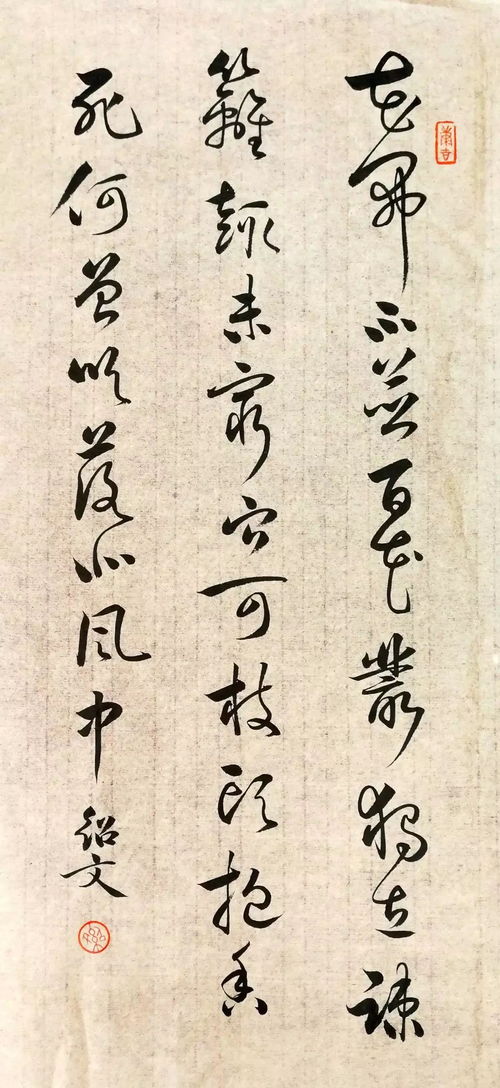 花开不并百花丛独立疎
篱趣未穷宁可枝头抱香
死何曾吹落北风中
绍文